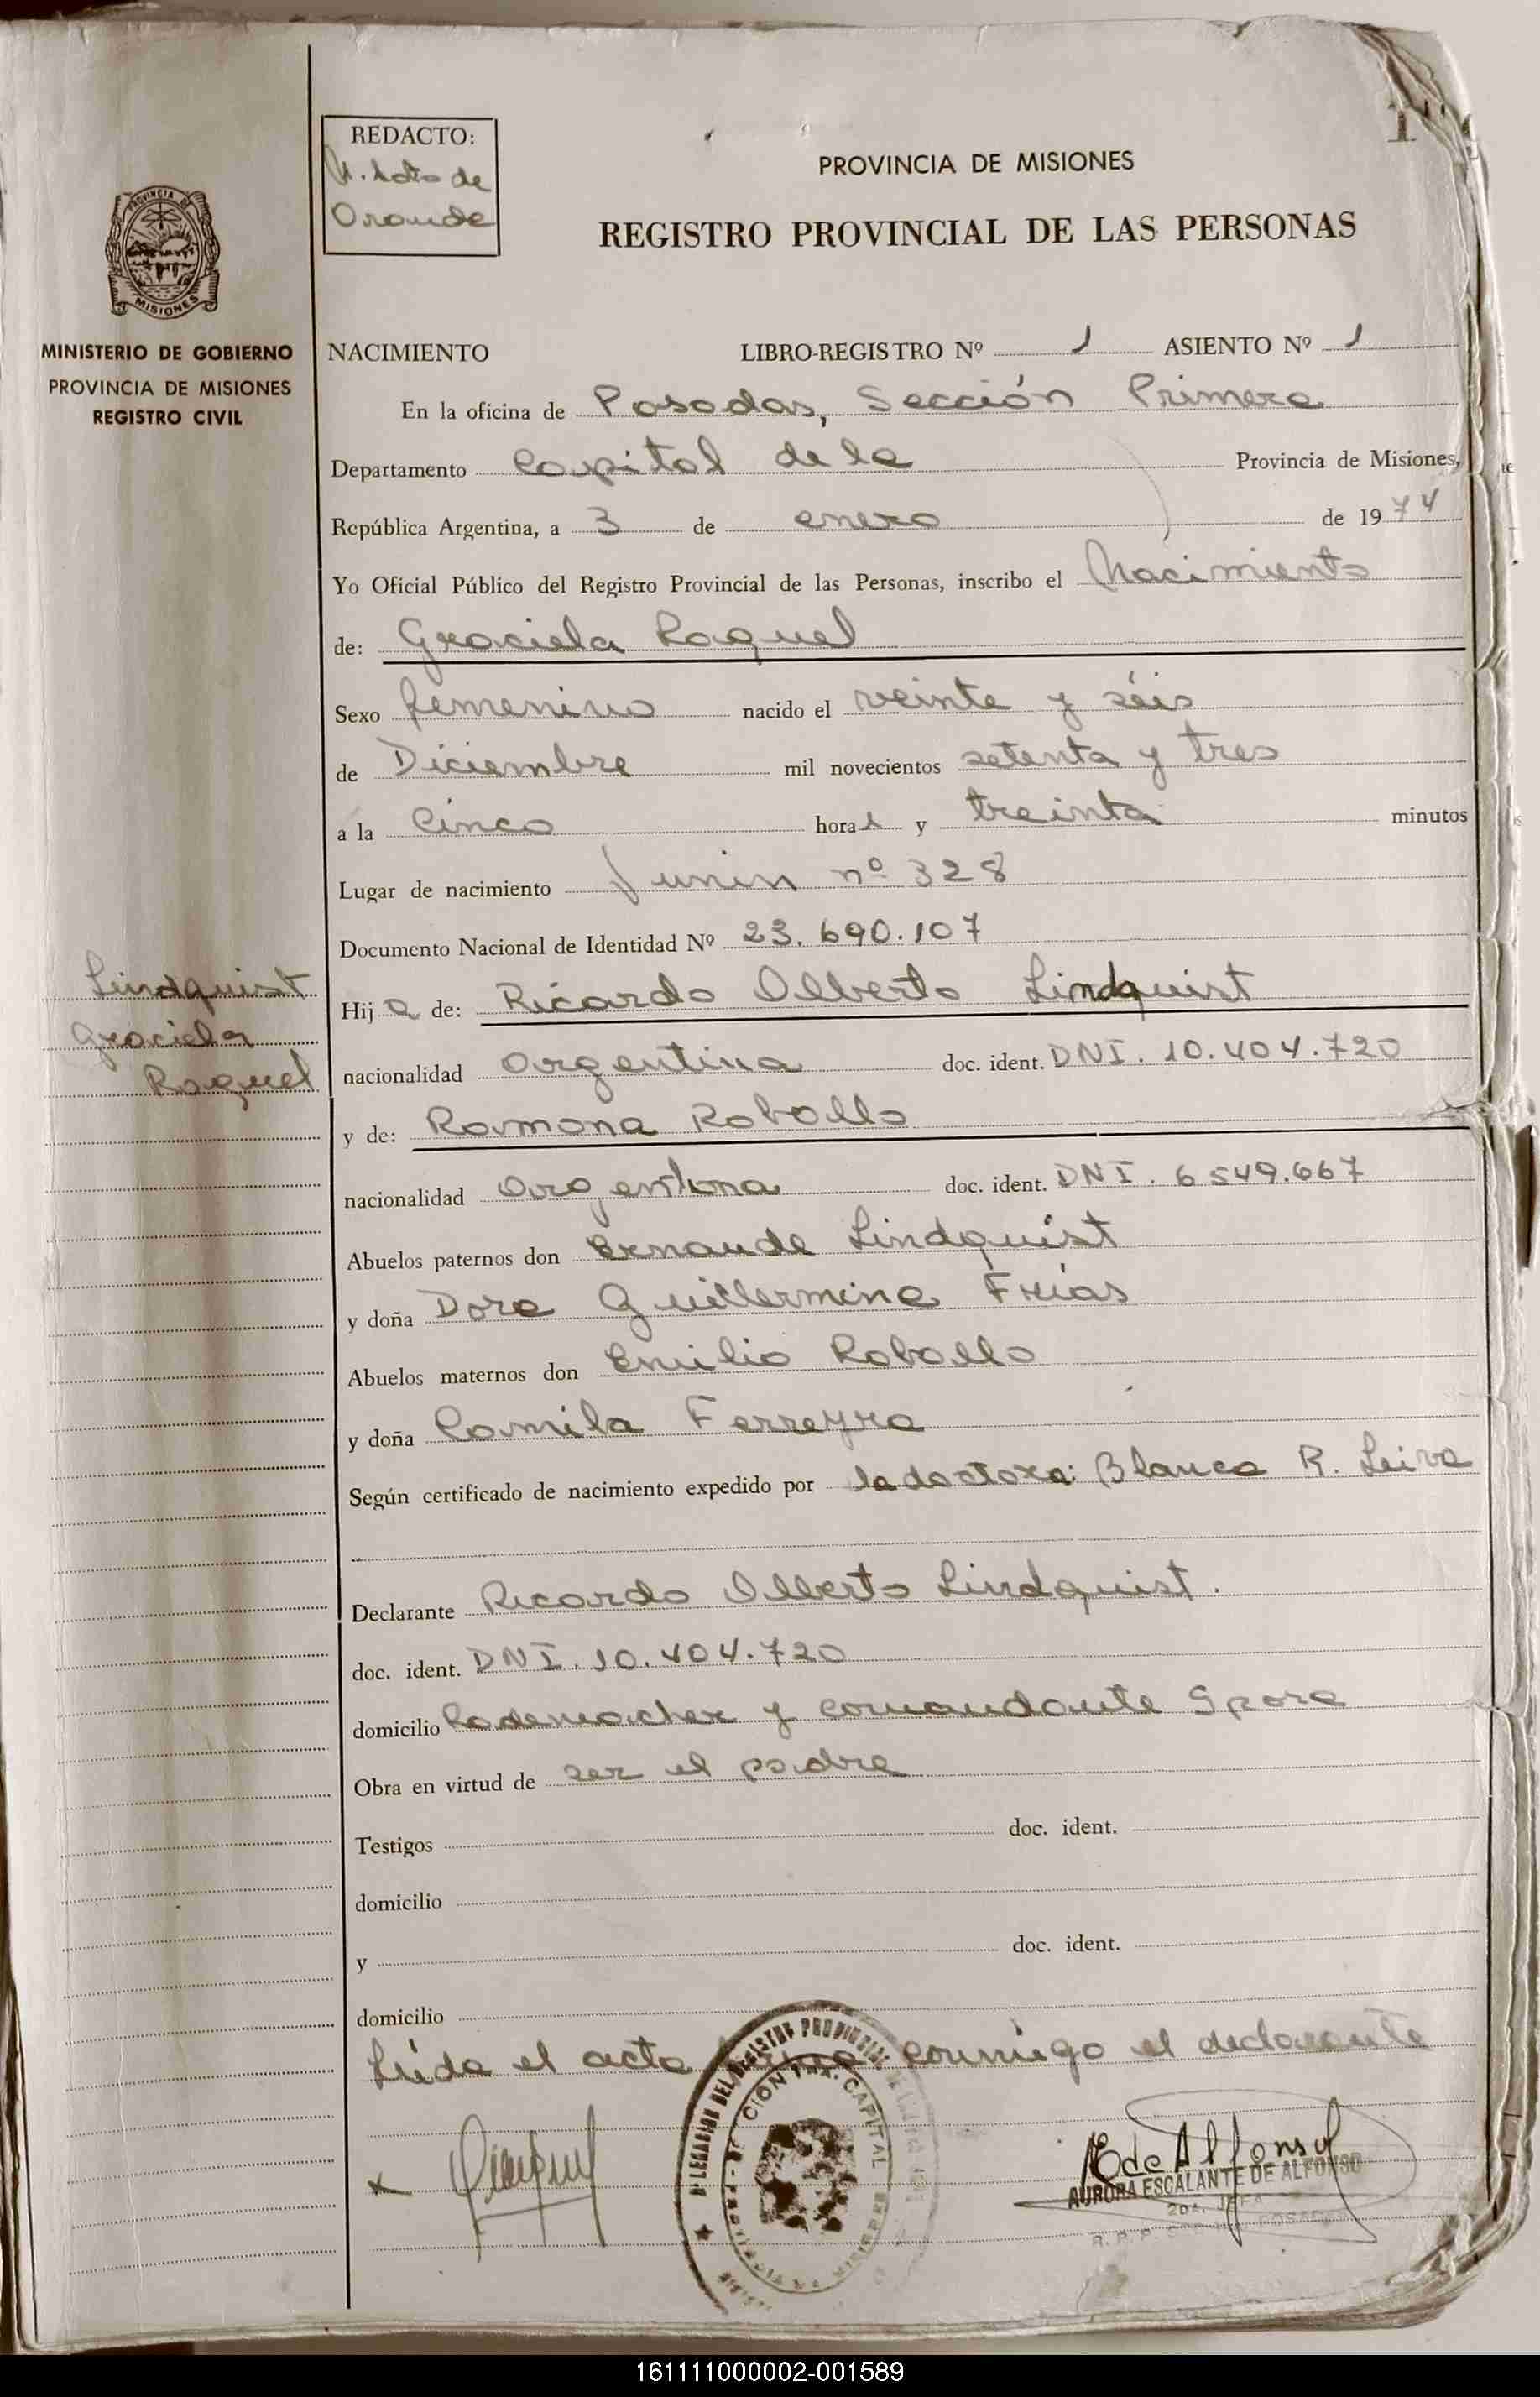 1
REDACTO:
de
PROVINCIA DE MISIONES
REGISTRO PROVINCIAL DE LAS PERSONAS
PROVINCIA DE
MISIONES
MINISTERIO DE GOBIERNO
PROVINCIA DE MISIONES
REGISTRO CIVIL
NACIMIENTO LIBRO-REGISTRO Nº 1 ASIENTO Nº 1
En la oficina de Posadas, Sección Primera
Departamento Capital de la Provincia de Misiones,
República Argentina, a 3 de enero de 1974
Yo Oficial Público del Registro Provincial de las Personas, inscribo el Nacimiento
de: Graciela Raquel
Sexo femenino nacido el veinte y séis
de Diciembre mil novecientos setenta y tres
a la Cinco horas y treinta minutos
Lugar de nacimiento Junin nº 328
Documento Nacional de Identidad Nº 23.690.107
Lindquist
Graciela
Raquel
Hija de: Ricardo Alberto Lindquist
nacionalidad argentina doc. ident. DNI. 10.404.720
y de: Ramona Robollo
nacionalidad argentina doc. ident. DNI. 6549.667
Abuelos paternos don Lindquist
y doña Dora Guillermina Frías
Abuelos maternos don Emilio Robollo
y doña Camila Ferreyra
Según certificado de nacimiento expedido por la doctora: Blanca R. Leiva
Declarante Ricardo Alberto Lindquist.
doc. ident. DNI. 10.404.720
domicilio Rademacher y comandante
Obra en virtud de ser el padre
Testigos doc. ident.
domicilio
y doc. ident.
domicilio
Leída el acta firma conmigo el declarante
DELEGACION DEL REGISTRO PROVINCIAL DE LAS
CAPITAL
E de Alfonso
AURORA ESCALANTE DE ALFONSO
2DA. JEFA
161111000002-001589